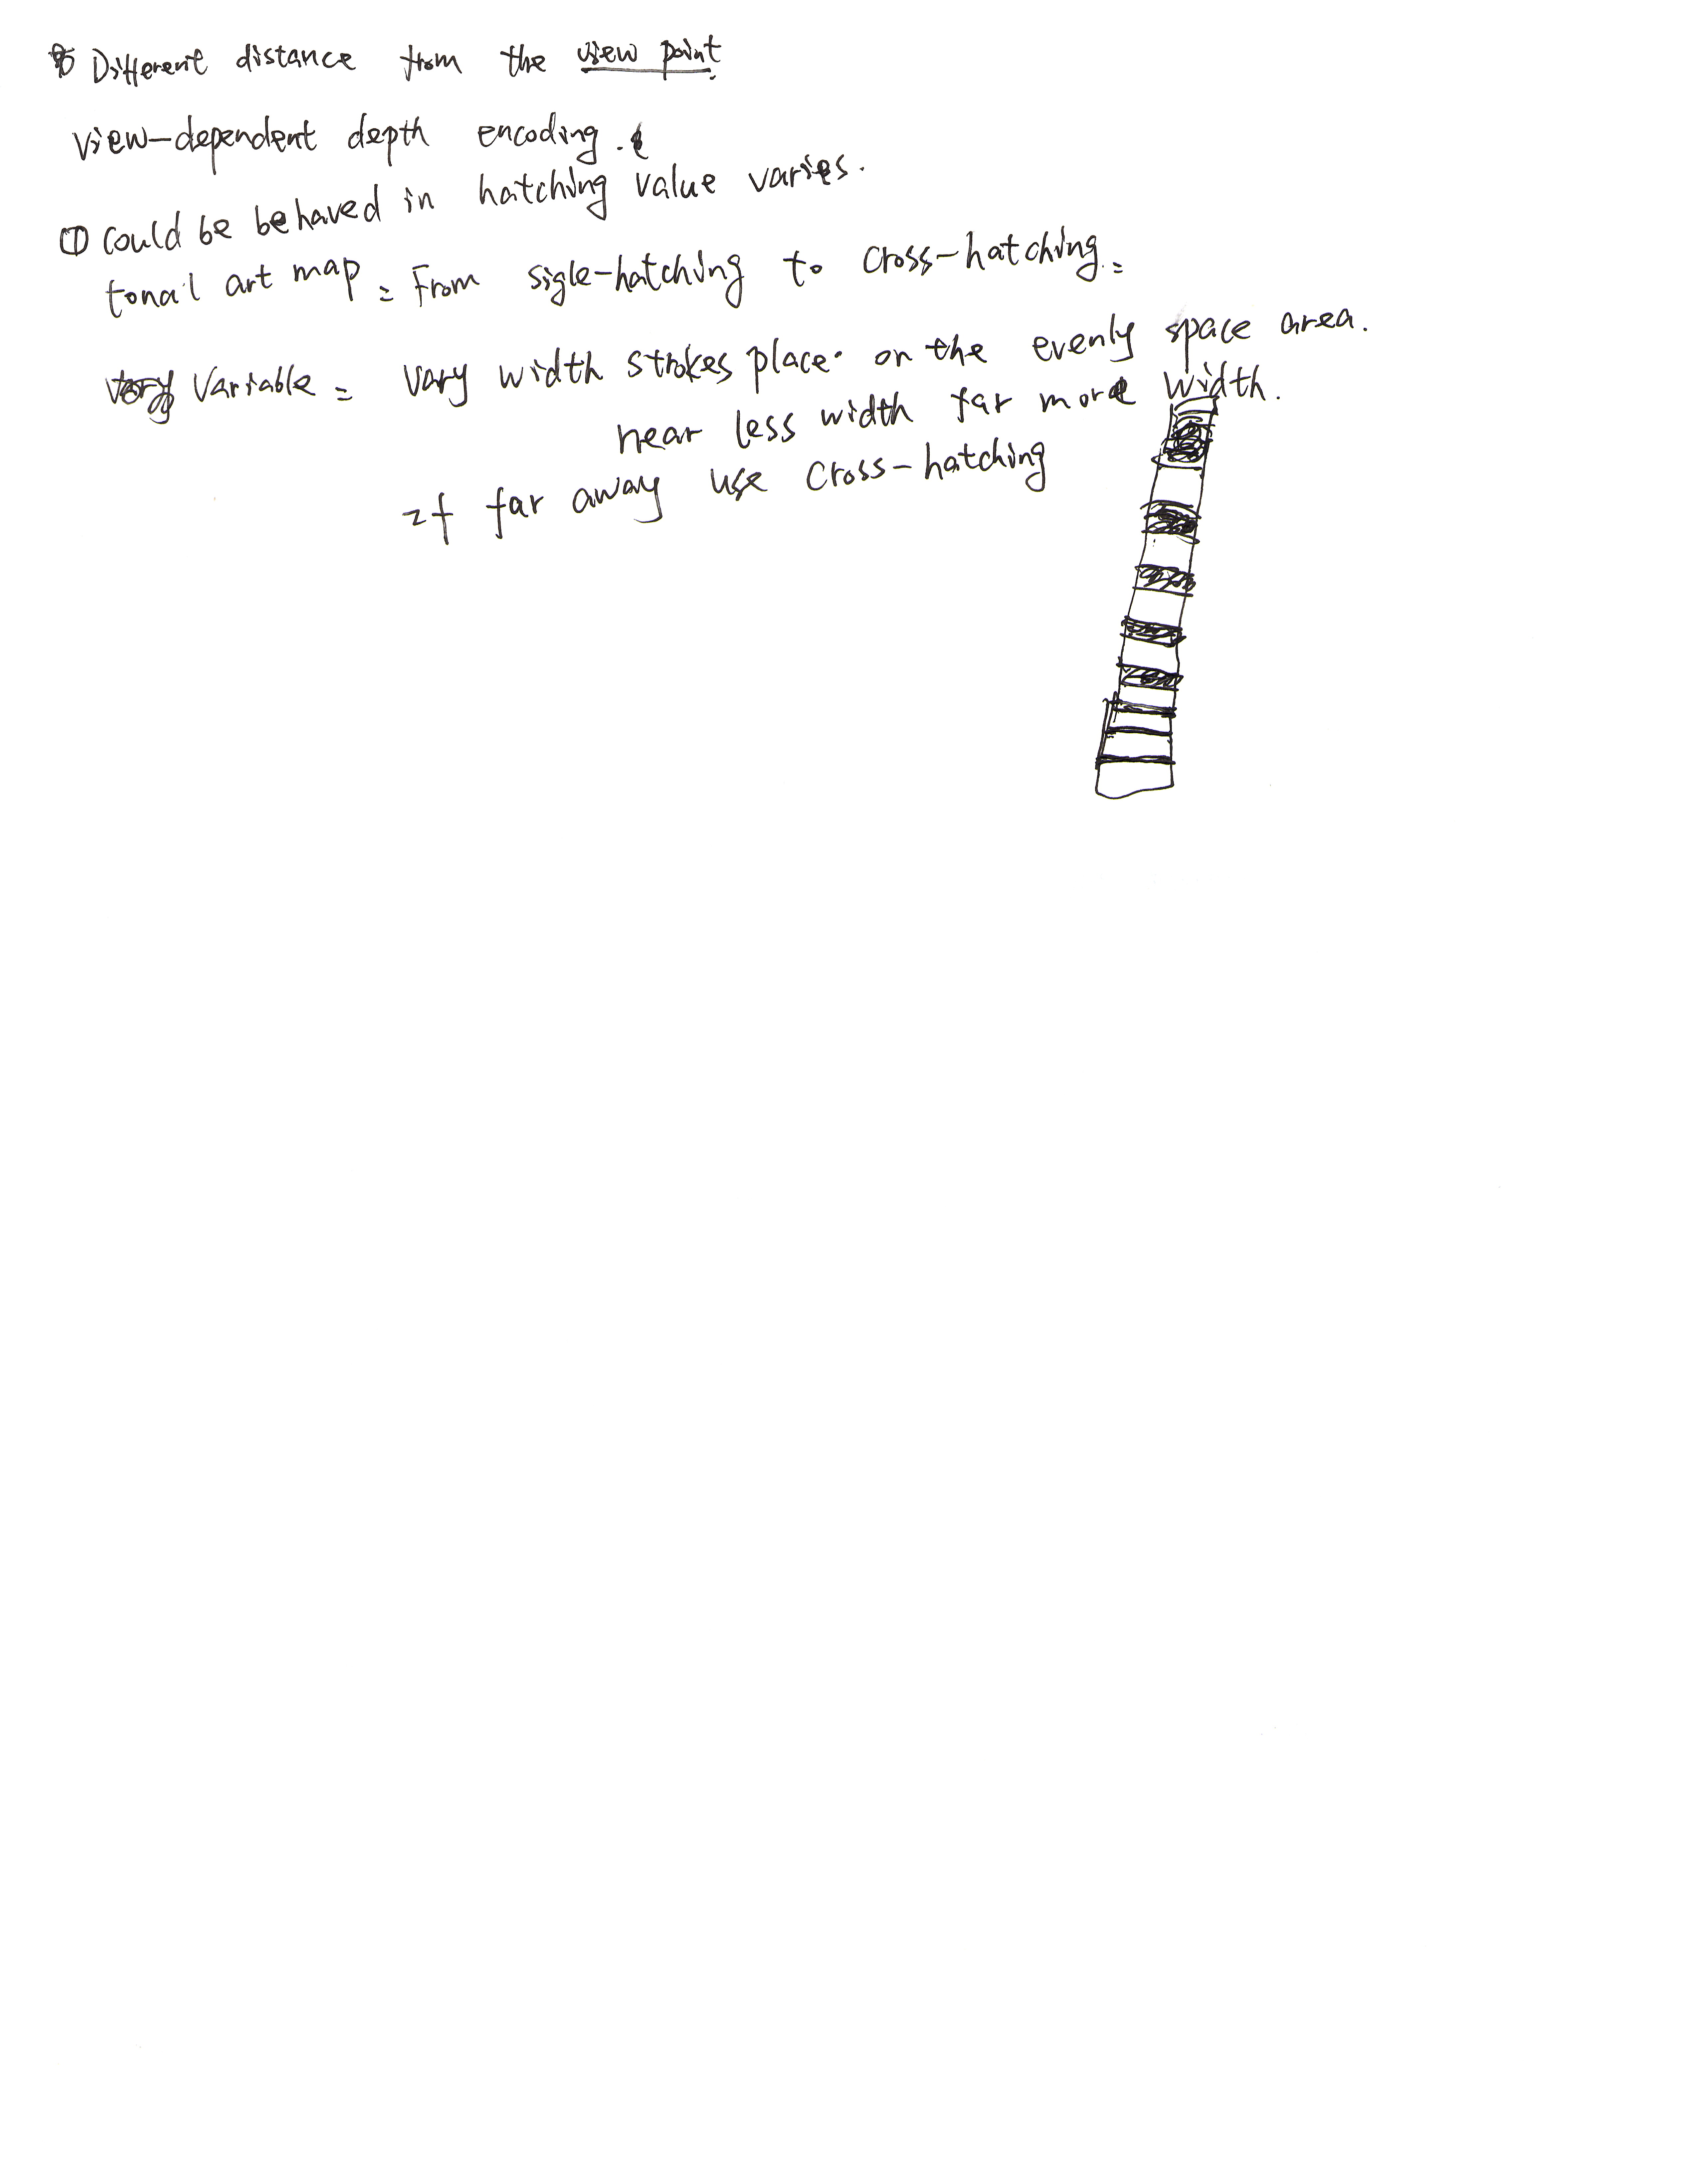 Different distance from the view point.
view-dependent depth encoding.
① could be behaved in hatching value varies.
tonal art map: From sigle-hatching to cross-hatching:
Variable: vary width strokes place on the evenly space area.
near less width far more width.
If far away use cross-hatching